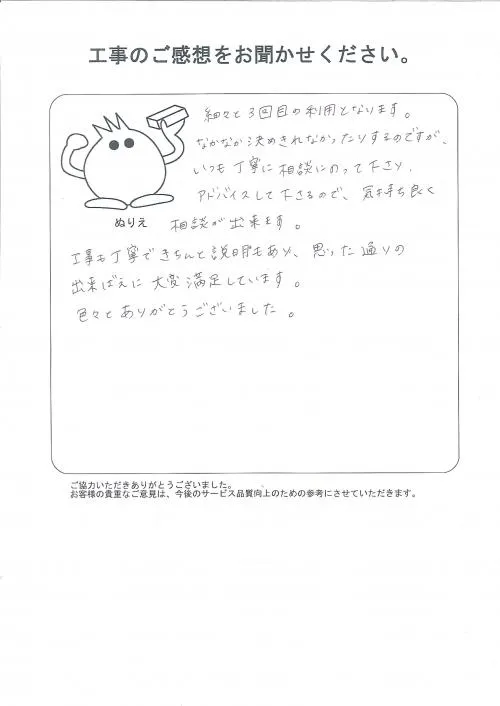 工事のご感想をお聞かせください。
細々と3回目の利用となります。
なかなか決めきれなかったりするのですが、
いつも丁寧に相談にのって下さり、
アドバイスして下さるので、気持ち良く
ぬりえ
相談が出来ます。
工事も丁寧できちんと説明もあり、思った通りの
出来ばえに大変満足しています。
色々とありがとうございました。
ご協力いただきありがとうございました。
お客様の貴重なご意見は、今後のサービス品質向上のための参考にさせていただきます。